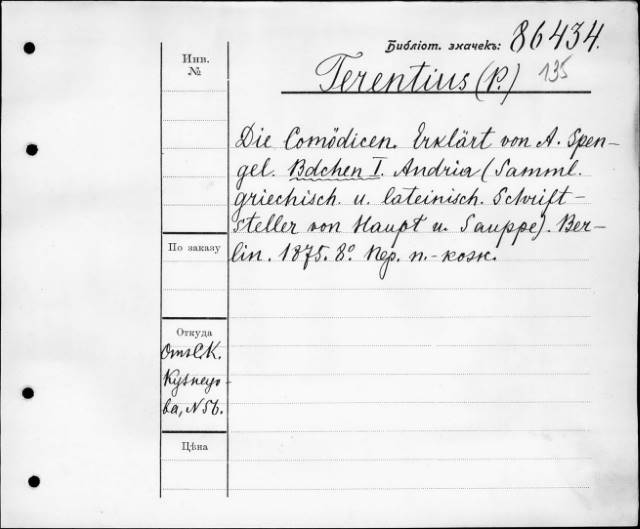 Библіот. значекъ: 86434.
Инв.
№
Terentius (P.) 135
Die Comödieen. Erklärt von A. Spen-
gel. Bdchen I. Andria (Samml.
griechisch. u. lateinisch. Schrift-
steller von Haupt u. Sauppe). Ber-
lin. 1875. 8º. Пер. п.-кож.
По заказу
Откуда
Отъ С. К.
Кузнецо-
ва, №56.
Цѣна